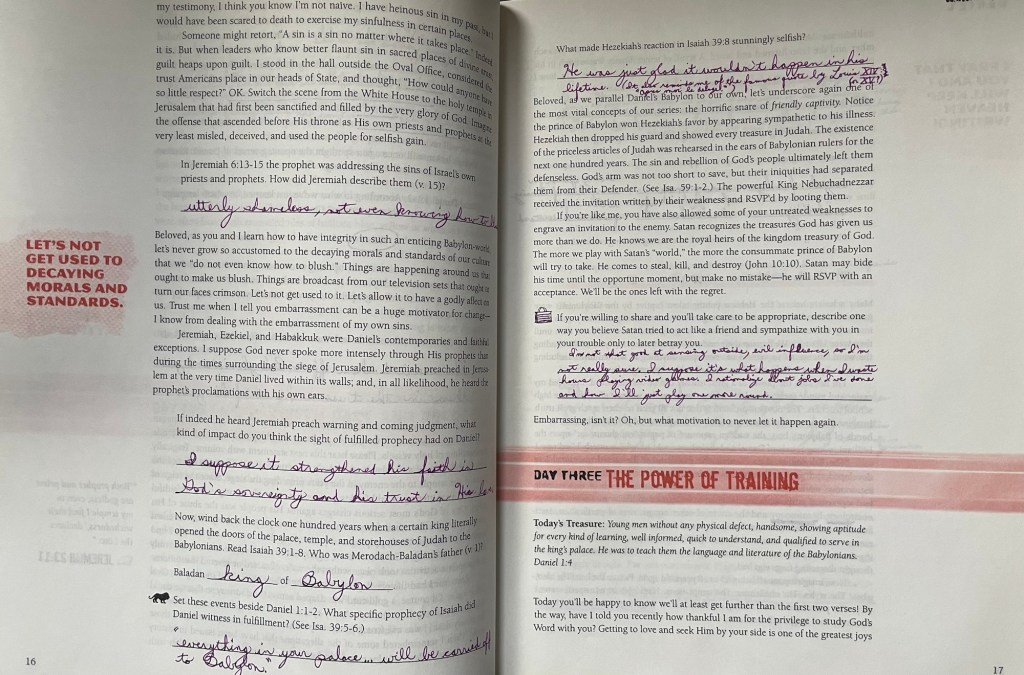 my testimony, I think you know I'm not naive. I have heinous sin in my past, but I
would have been scared to death to exercise my sinfulness in certain places.
Someone might retort, "A sin is a sin no matter where it takes place." Indeed
it is. But when leaders who know better flaunt sin in sacred places of divine trust,
guilt heaps upon guilt. I stood in the hall outside the Oval Office, considered the
trust Americans place in our heads of State, and thought, "How could anyone have
so little respect?" OK. Switch the scene from the White House to the holy temple in
Jerusalem that had first been sanctified and filled by the very glory of God. Imagine
the offense that ascended before His throne as His own priests and prophets at the
very least misled, deceived, and used the people for selfish gain.
In Jeremiah 6:13-15 the prophet was addressing the sins of Israel's own
priests and prophets. How did Jeremiah describe them (v. 15)?
utterly shameless, not even knowing how to
Beloved, as you and I learn how to have integrity in such an enticing Babylon-world,
let's never grow so accustomed to the decaying morals and standards of our culture
that we "do not even know how to blush." Things are happening around us that
ought to make us blush. Things are broadcast from our television sets that ought to
turn our faces crimson. Let's not get used to it. Let's allow it to have a godly affect on
us. Trust me when I tell you embarrassment can be a huge motivator for change—
I know from dealing with the embarrassment of my own sins.
Jeremiah, Ezekiel, and Habakkuk were Daniel's contemporaries and faithful
exceptions. I suppose God never spoke more intensely through His prophets than
during the times surrounding the siege of Jerusalem. Jeremiah preached in Jerusa-
lem at the very time Daniel lived within its walls; and, in all likelihood, he heard the
prophet's proclamations with his own ears.
If indeed he heard Jeremiah preach warning and coming judgment, what
kind of impact do you think the sight of fulfilled prophecy had on Daniel?
I suppose it strengthened his faith in
God's sovereignty and his trust in His
Now, wind back the clock one hundred years when a certain king literally
opened the doors of the palace, temple, and storehouses of Judah to the
Babylonians. Read Isaiah 39:1-8. Who was Merodach-Baladan's father (v. 1)?
Baladan king of Babylon
Set these events beside Daniel 1:1-2. What specific prophecy of Isaiah did
Daniel witness in fulfillment? (See Isa. 39:5-6.)
"everything in your palace... will be carried off
to Babylon."
16
LET'S NOT
GET USED TO
DECAYING
MORALS AND
STANDARDS.
What made Hezekiah's reaction in Isaiah 39:8 stunningly selfish?
He was just glad it wouldn't happen in his
lifetime. It also reminds me of the famous quote by Louis XIV
(or XV?)
Beloved, as we parallel Daniel's Babylon to our own, let's underscore again one of
the most vital concepts of our series: the horrific snare of friendly captivity. Notice
the prince of Babylon won Hezekiah's favor by appearing sympathetic to his illness.
Hezekiah then dropped his guard and showed every treasure in Judah. The existence
of the priceless articles of Judah was rehearsed in the ears of Babylonian rulers for the
next one hundred years. The sin and rebellion of God's people ultimately left them
defenseless. God's arm was not too short to save, but their iniquities had separated
them from their Defender. (See Isa. 59:1-2.) The powerful King Nebuchadnezzar
received the invitation written by their weakness and RSVP'd by looting them.
If you're like me, you have also allowed some of your untreated weaknesses to
engrave an invitation to the enemy. Satan recognizes the treasures God has given us
more than we do. He knows we are the royal heirs of the kingdom treasury of God.
The more we play with Satan's "world," the more the consummate prince of Babylon
will try to take. He comes to steal, kill, and destroy (John 10:10). Satan may bide
his time until the opportune moment, but make no mistake—he will RSVP with an
acceptance. We'll be the ones left with the regret.
If you're willing to share and you'll take care to be appropriate, describe one
way you believe Satan tried to act like a friend and sympathize with you in
your trouble only to later betray you.
I'm not that good at sensing outside, evil influence, so I'm
not really sure. I suppose it's what happens when I waste
hours playing video games. I rationalize about jobs I've done
and how I'll just play one more round.
Embarrassing, isn't it? Oh, but what motivation to never let it happen again.
DAY THREE THE POWER OF TRAINING
Today's Treasure: Young men without any physical defect, handsome, showing aptitude
for every kind of learning, well informed, quick to understand, and qualified to serve in
the king's palace. He was to teach them the language and literature of the Babylonians.
Daniel 1:4
Today you'll be happy to know we'll at least get further than the first two verses! By
the way, have I told you recently how thankful I am for the privilege to study God's
Word with you? Getting to love and seek Him by your side is one of the greatest joys
17